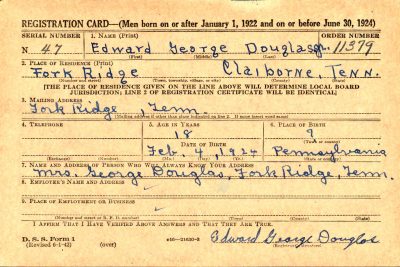 REGISTRATION CARD—(Men born on or after January 1, 1922 and on or before June 30, 1924)
SERIAL NUMBER 1. NAME (Print) ORDER NUMBER
N 47 Edward George Douglas Jr. 11379
2. PLACE OF RESIDENCE (Print)
Fork Ridge Claiborne, Tenn.
(Number and street) (Town, township, village, or city) (County) (State)
[THE PLACE OF RESIDENCE GIVEN ON THE LINE ABOVE WILL DETERMINE LOCAL BOARD
JURISDICTION; LINE 2 OF REGISTRATION CERTIFICATE WILL BE IDENTICAL]
3. MAILING ADDRESS
Fork Ridge, Tenn.
[Mailing address if other than place indicated on line 2. If same insert word same]
4. TELEPHONE 5. AGE IN YEARS 6. PLACE OF BIRTH
18 ?
DATE OF BIRTH (Town or county)
Feb 4, 1924 Pennsylvania
(Exchange) (Number) (Mo.) (Day) (Yr.) (State or country)
7. NAME AND ADDRESS OF PERSON WHO WILL ALWAYS KNOW YOUR ADDRESS
Mrs. George Douglas, Fork Ridge, Tenn.
8. EMPLOYER'S NAME AND ADDRESS
9. PLACE OF EMPLOYMENT OR BUSINESS
(Number and street or R. F. D. number) (Town) (County) (State)
I AFFIRM THAT I HAVE VERIFIED ABOVE ANSWERS AND THAT THEY ARE TRUE.
D. S. S. Form 1
(Revised 6-1-42) (over) Edward George Douglas
(Registrant's signature)